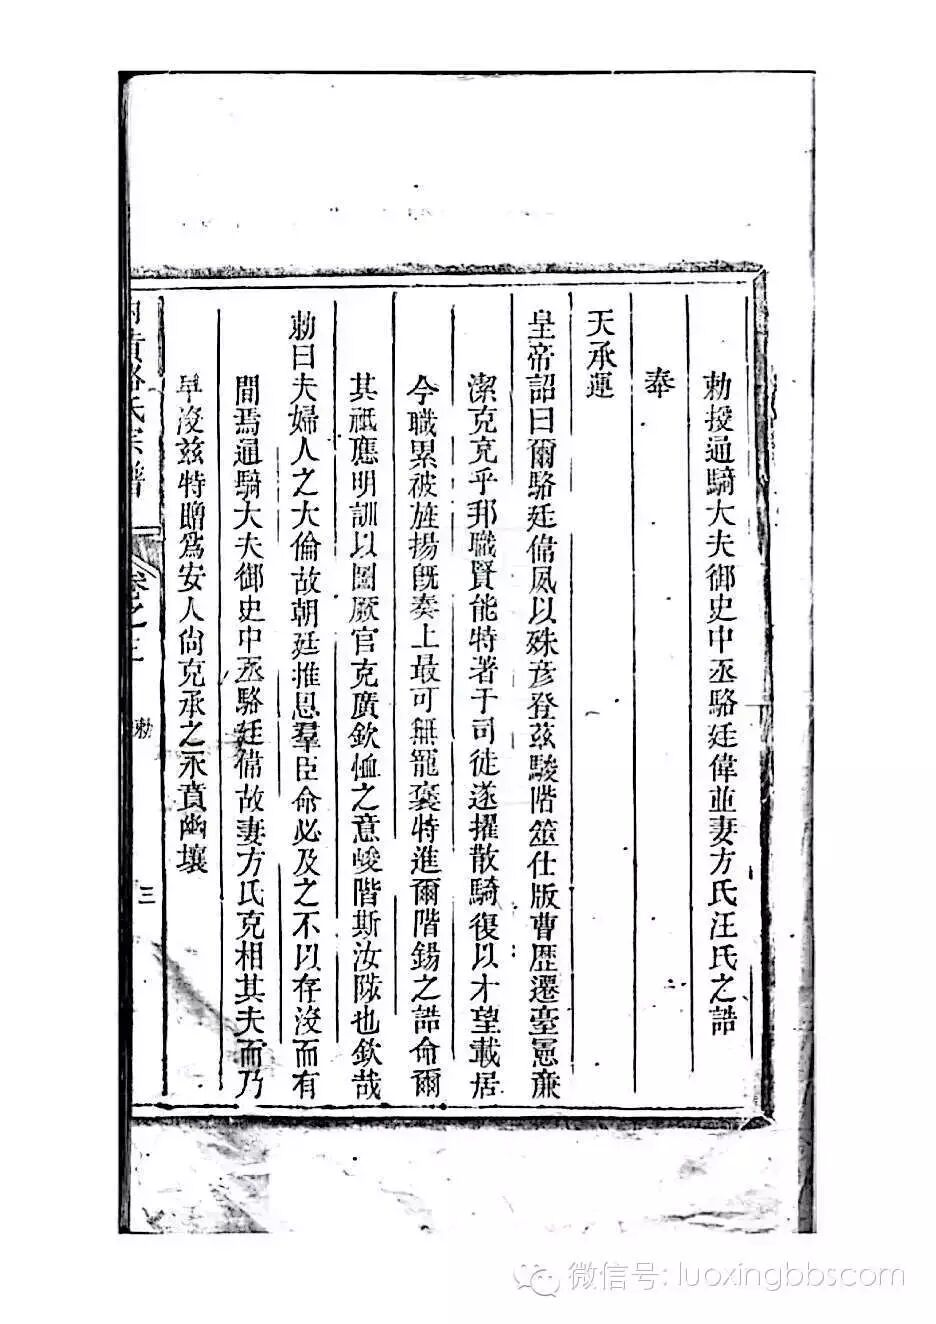 勅授通騎大夫御史中丞駱廷偉並妻方氏汪氏之誥
奉
天承運
皇帝詔曰爾駱廷偉夙以殊彥登茲駿階筮仕版曹歷遷臺憲亷
潔克充乎邦職賢能特著于司徒遂擢散騎復以才望載居
今職累被旌揚旣奏上最可無寵襃特進爾階錫之誥命爾
其祗應明訓以圖厥官克廣欽恤之意峻階斯汝陟也欽哉
勅曰夫婦人之大倫故朝廷推恩羣臣命必及之不以存沒而有
間焉通騎大夫御史中丞駱廷偉故妻方氏克相其夫而乃
早沒茲特贈爲安人尙克承之永賁幽壤
黃駱氏宗譜 卷之三 勅 三
微信号: luoxingbbscom